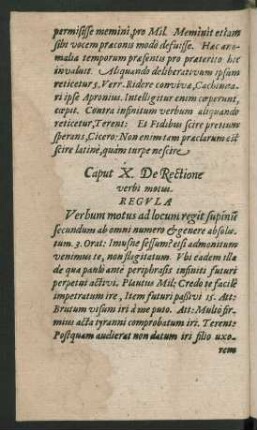 permisisse memini, pro Mil. Meminit etiam
sibi vocem praeconis modo defuisse. Hac ano-
malia temporum praesentis pro praeterito hic
invaluit. Aliquando deliberativum ipsum
reticetur 5, Verr. Ridere convivae, Cachinna-
ri ipse Apronius. Intelligitur enim coeperunt,
coepit. Contra infinitum verbum aliquando
reticetur, Terent: Et Fidibus scire pretium
sperans, Cicero: Non enim tam praeclarum est
scire latine, quàm turpe nescire
Caput X. De Rectione
verbi motus.
REGVLA
Verbum motus ad locum regit supinū
secundum ab omni numero & genere absolu-
tum. 3. Orat: Imusne sessum? etsi admonitum
venimus te, non flagitatum. Vbi eadem illa
de qua paulò ante periphrasis infiniti futuri
perpetui activi. Plautus Mil: Credo te facilè
impetratum ire, Item futuri passivi is. Att:
Brutum visum iri à me puto. Att: Multò fir-
mius acta tyranni comprobatum iri. Terent:
Postquam audierat non datum iri filio uxo-
rem